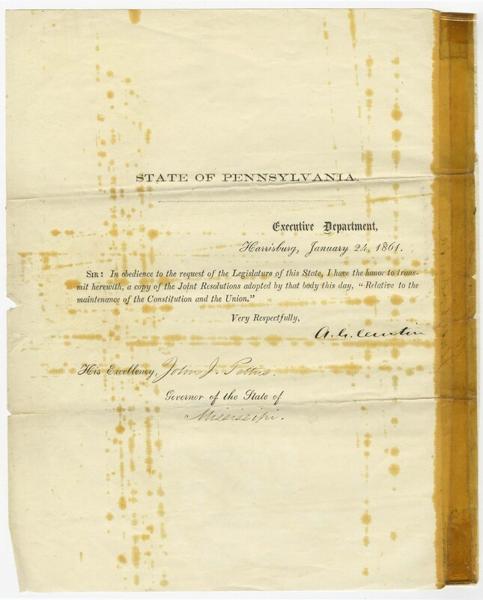 STATE OF PENNSYLVANIA.
Executive Department,
Harrisburg, January 24, 1861.
SIR: In obedience to the request of the Legislature of this State, I have the honor to trans-
mit herewith, a copy of the Joint Resolutions adopted by that body this day, “Relative to the
maintenance of the Constitution and the Union.”
Very Respectfully,
A. G. Curtin
His Excellency, John J. Pettus
Governor of the State of
Mississippi.